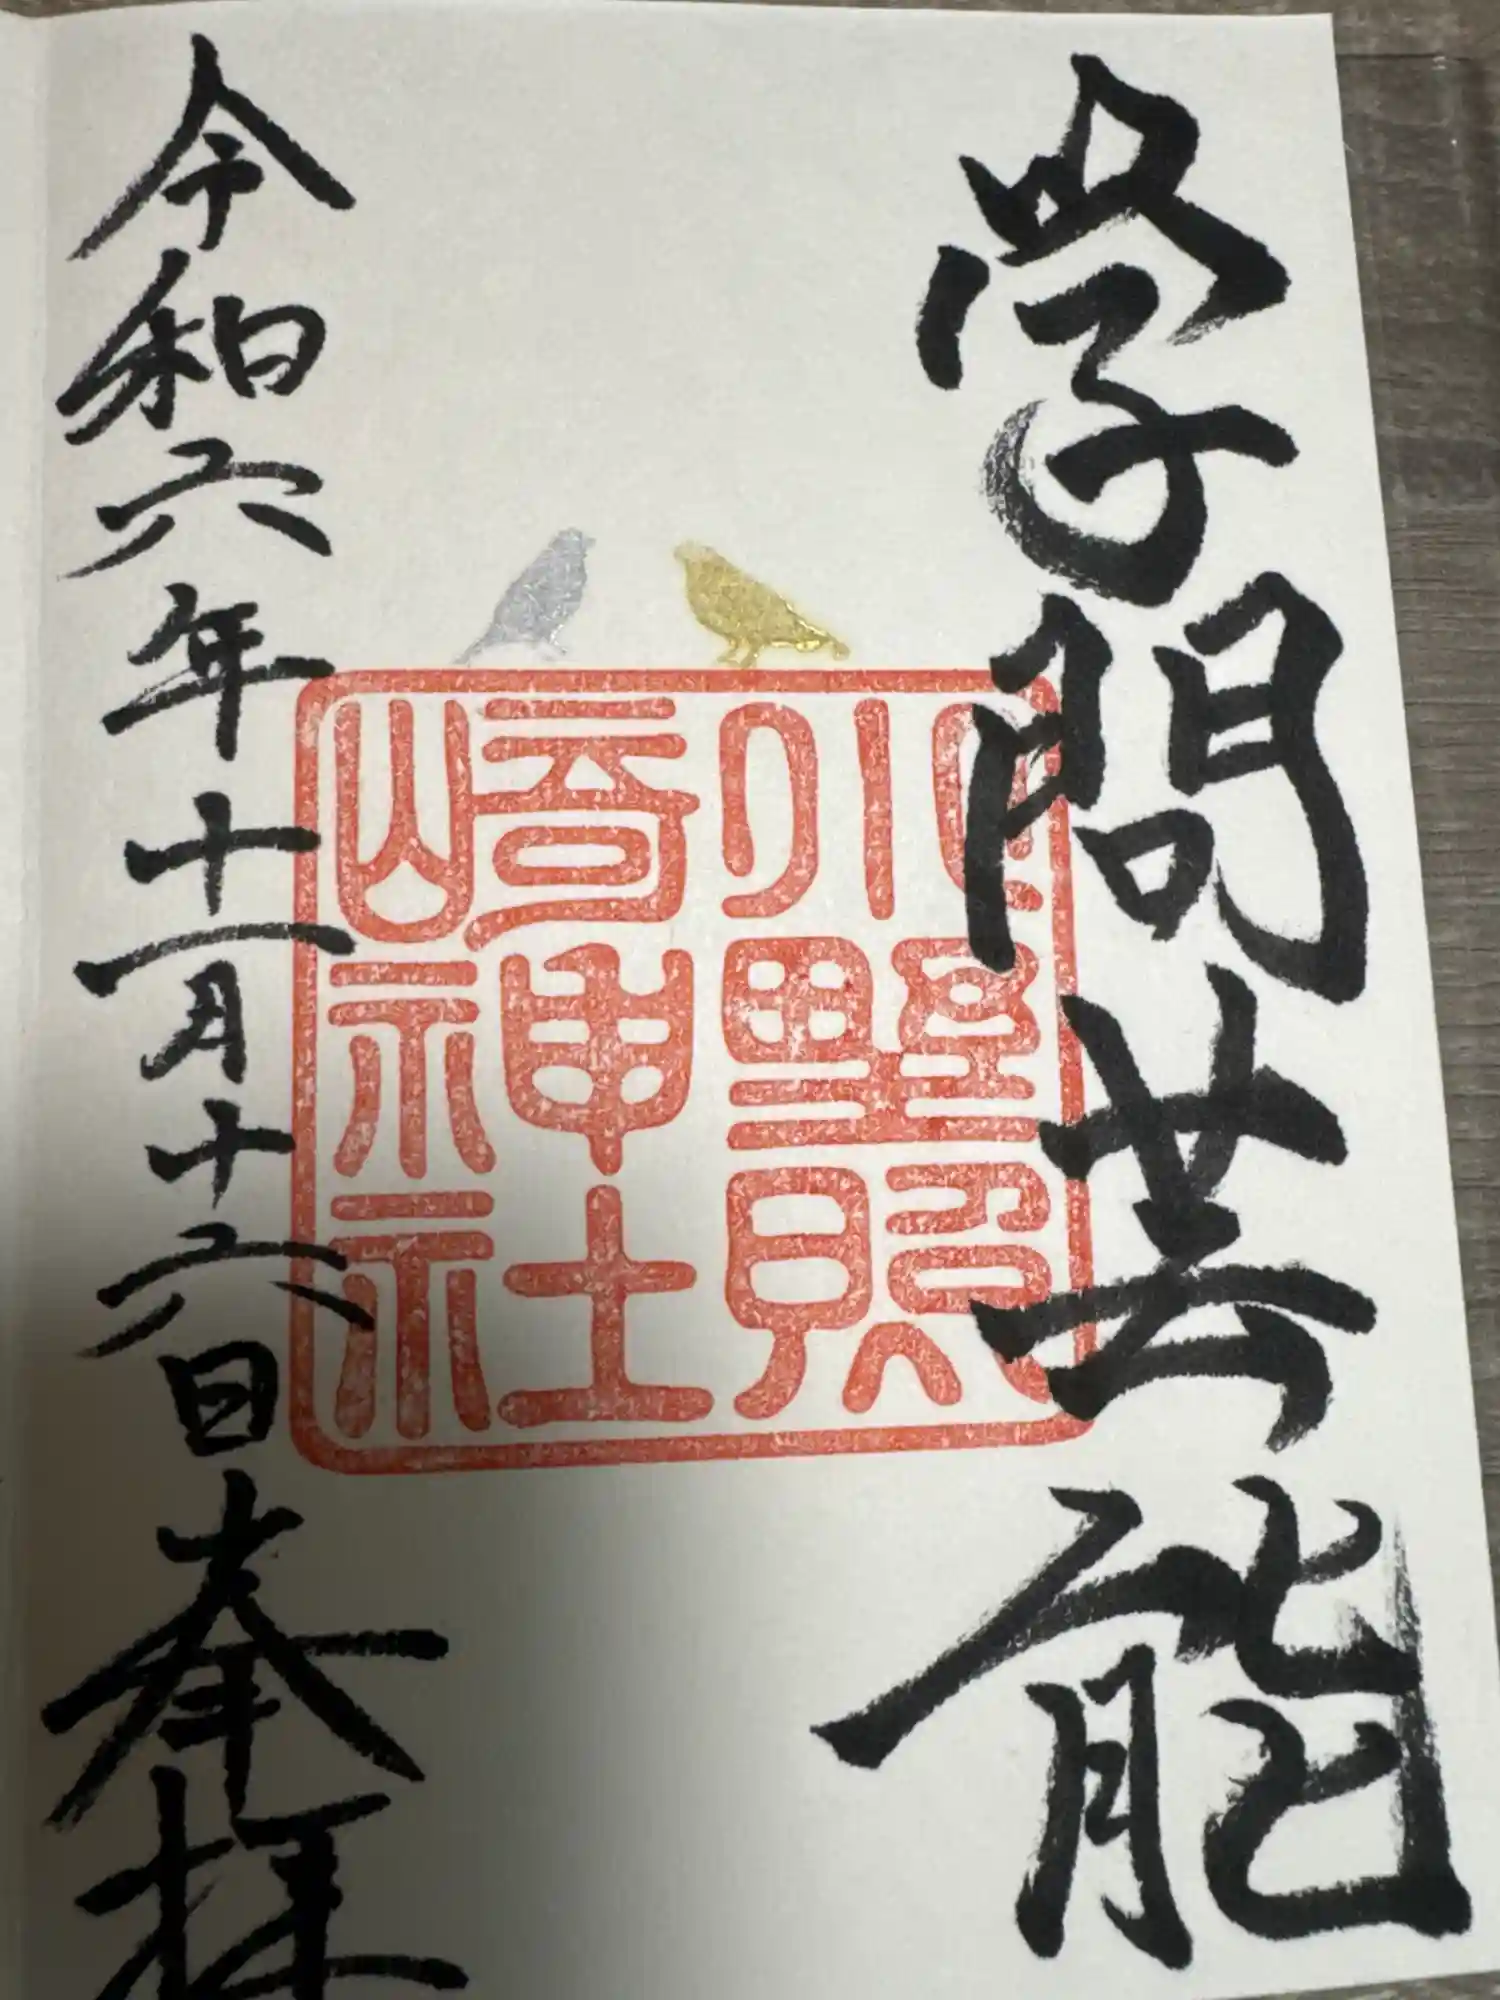 学問芸能
小野照
崎神社
令和六年十一月十六日奉拝